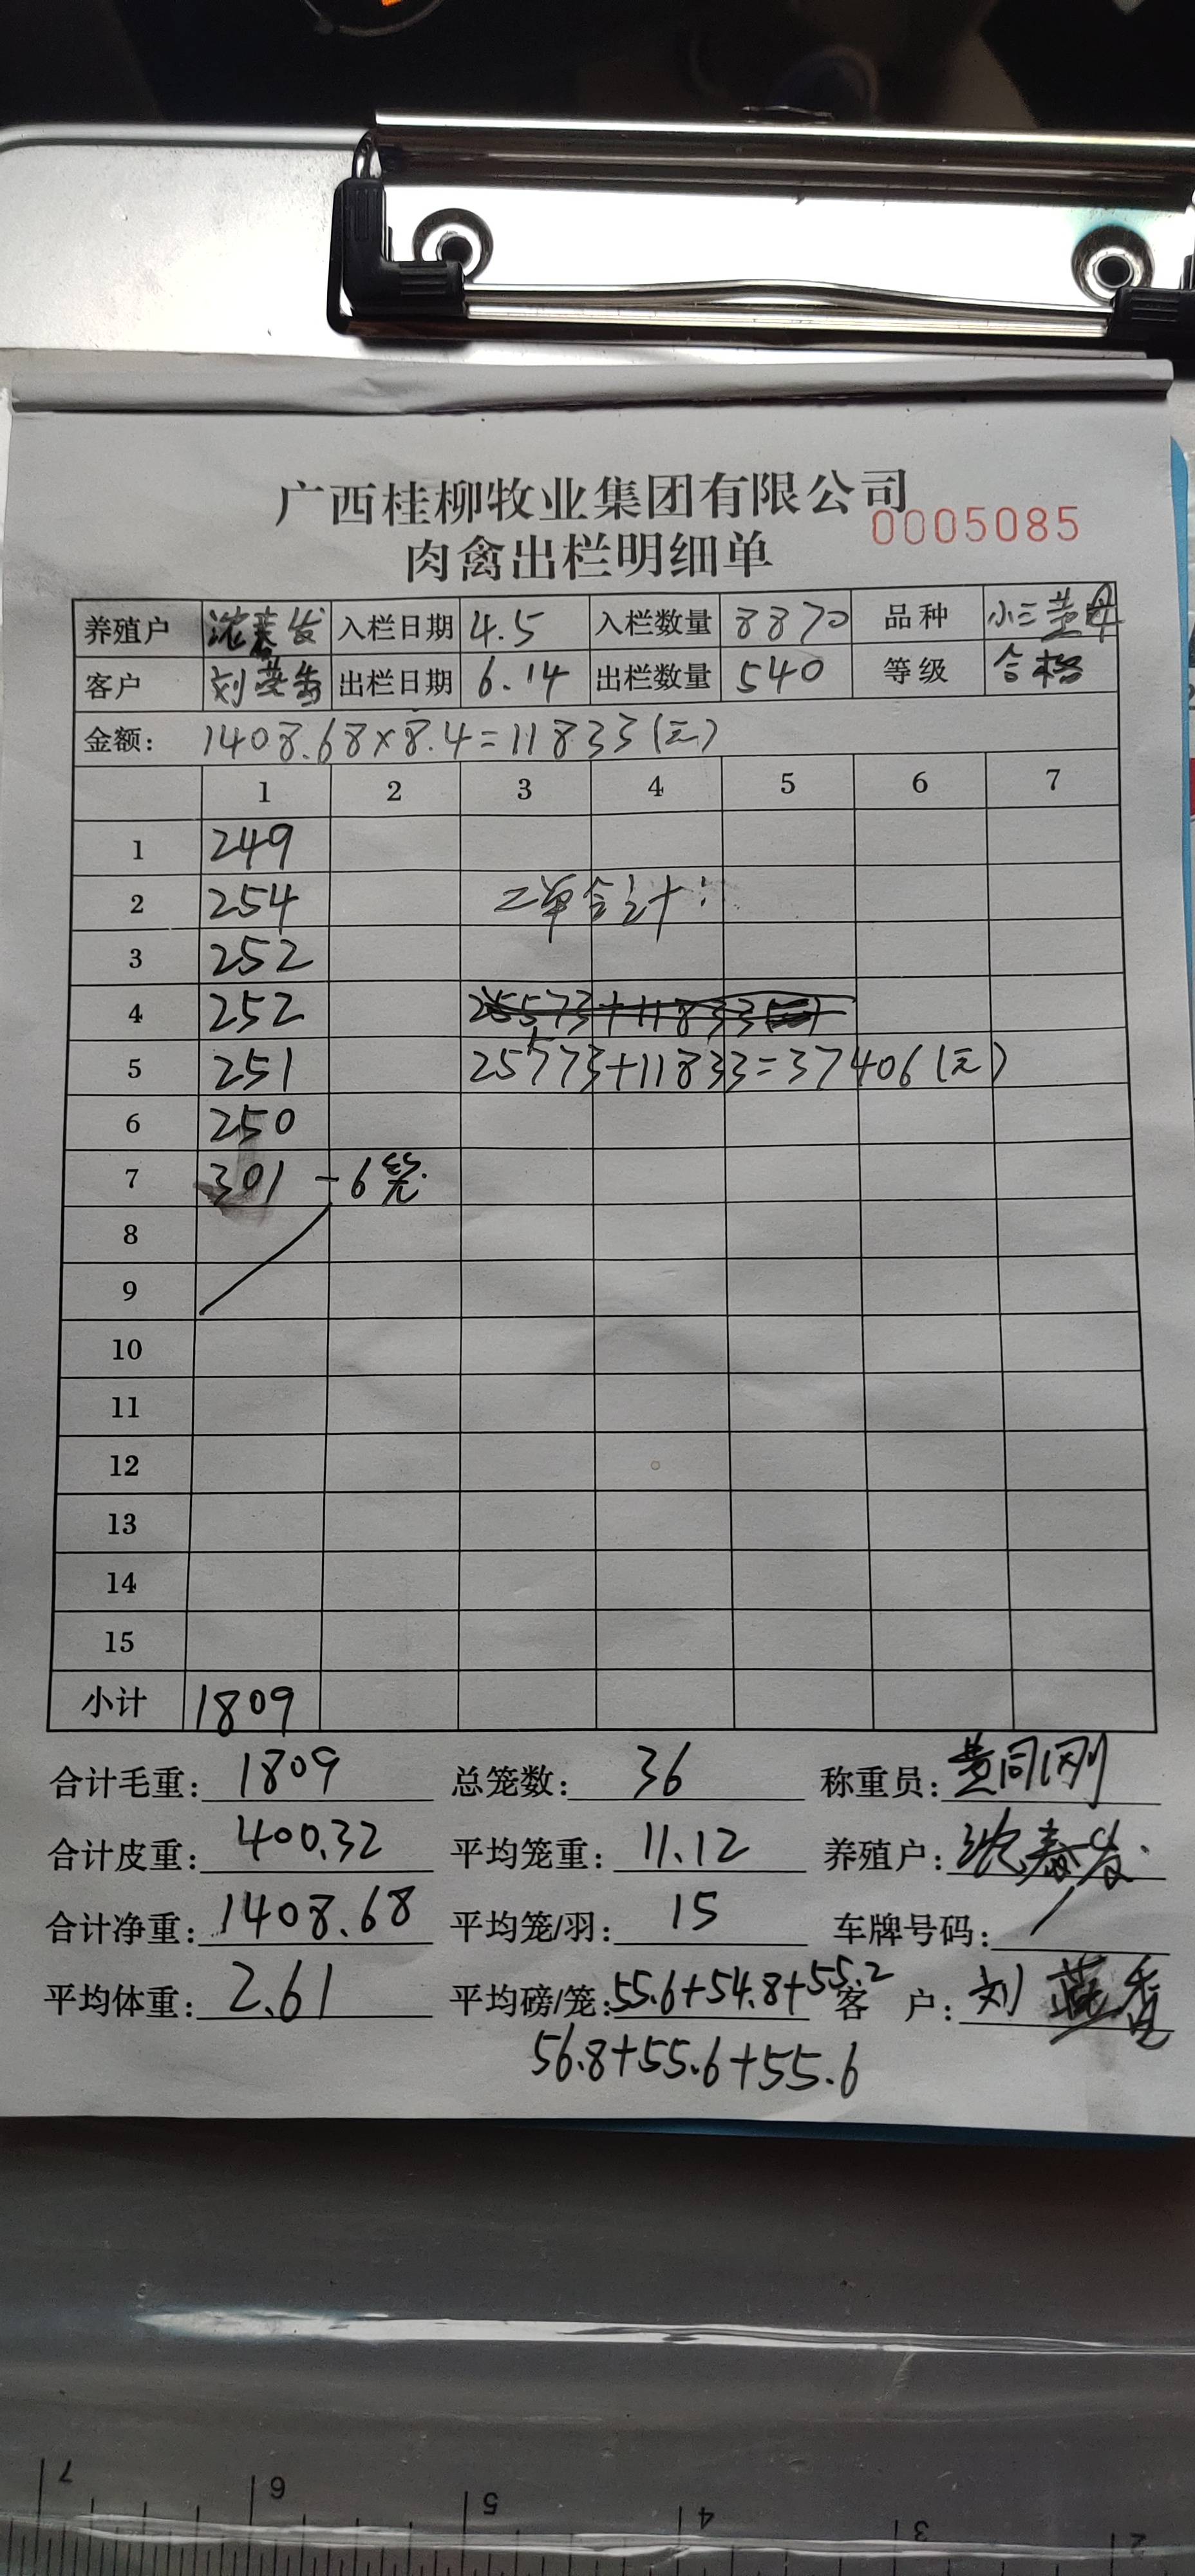 广西桂柳牧业集团有限公司
0005085
肉禽出栏明细单
养殖户 沈泰发 入栏日期 4.5 入栏数量 8870 品种 小三黄母
客户 刘燕香 出栏日期 6.14 出栏数量 540 等级 合格
金额: 1408.68×8.4=11833(元)
1 2 3 4 5 6 7
1 249
2 254 二单合计:
3 252
4 252
5 251 25573+11833=37406(元)
6 250
7 301 -6笼
8
9
10
11
12
13
14
15
小计 1809
合计毛重: 1809 总笼数: 36 称重员: 黄同刚
合计皮重: 400.32 平均笼重: 11.12 养殖户: 沈泰发
合计净重: 1408.68 平均笼/羽: 15 车牌号码: /
平均体重: 2.61 平均磅/笼: 55.6+54.8+55.2 客户: 刘燕香
56.8+55.6+55.6
7 6 5 4 3 2